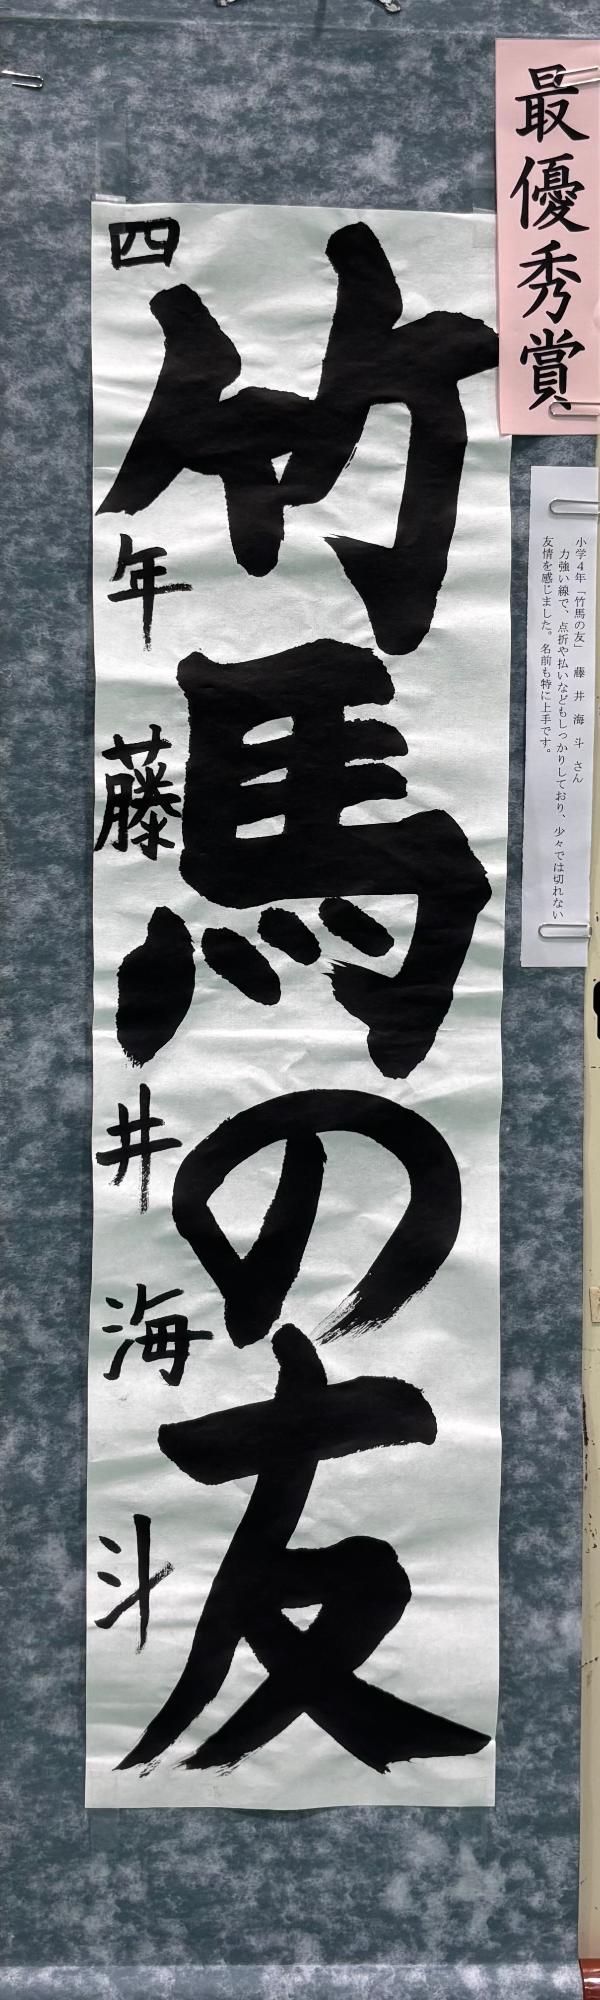 最優秀賞
小学4年「竹馬の友」 藤井海斗 さん
力強い線で、点折や払いなどもしっかりしており、少々では切れない
友情を感じました。名前も特に上手です。
竹馬の友
四年 藤井海斗